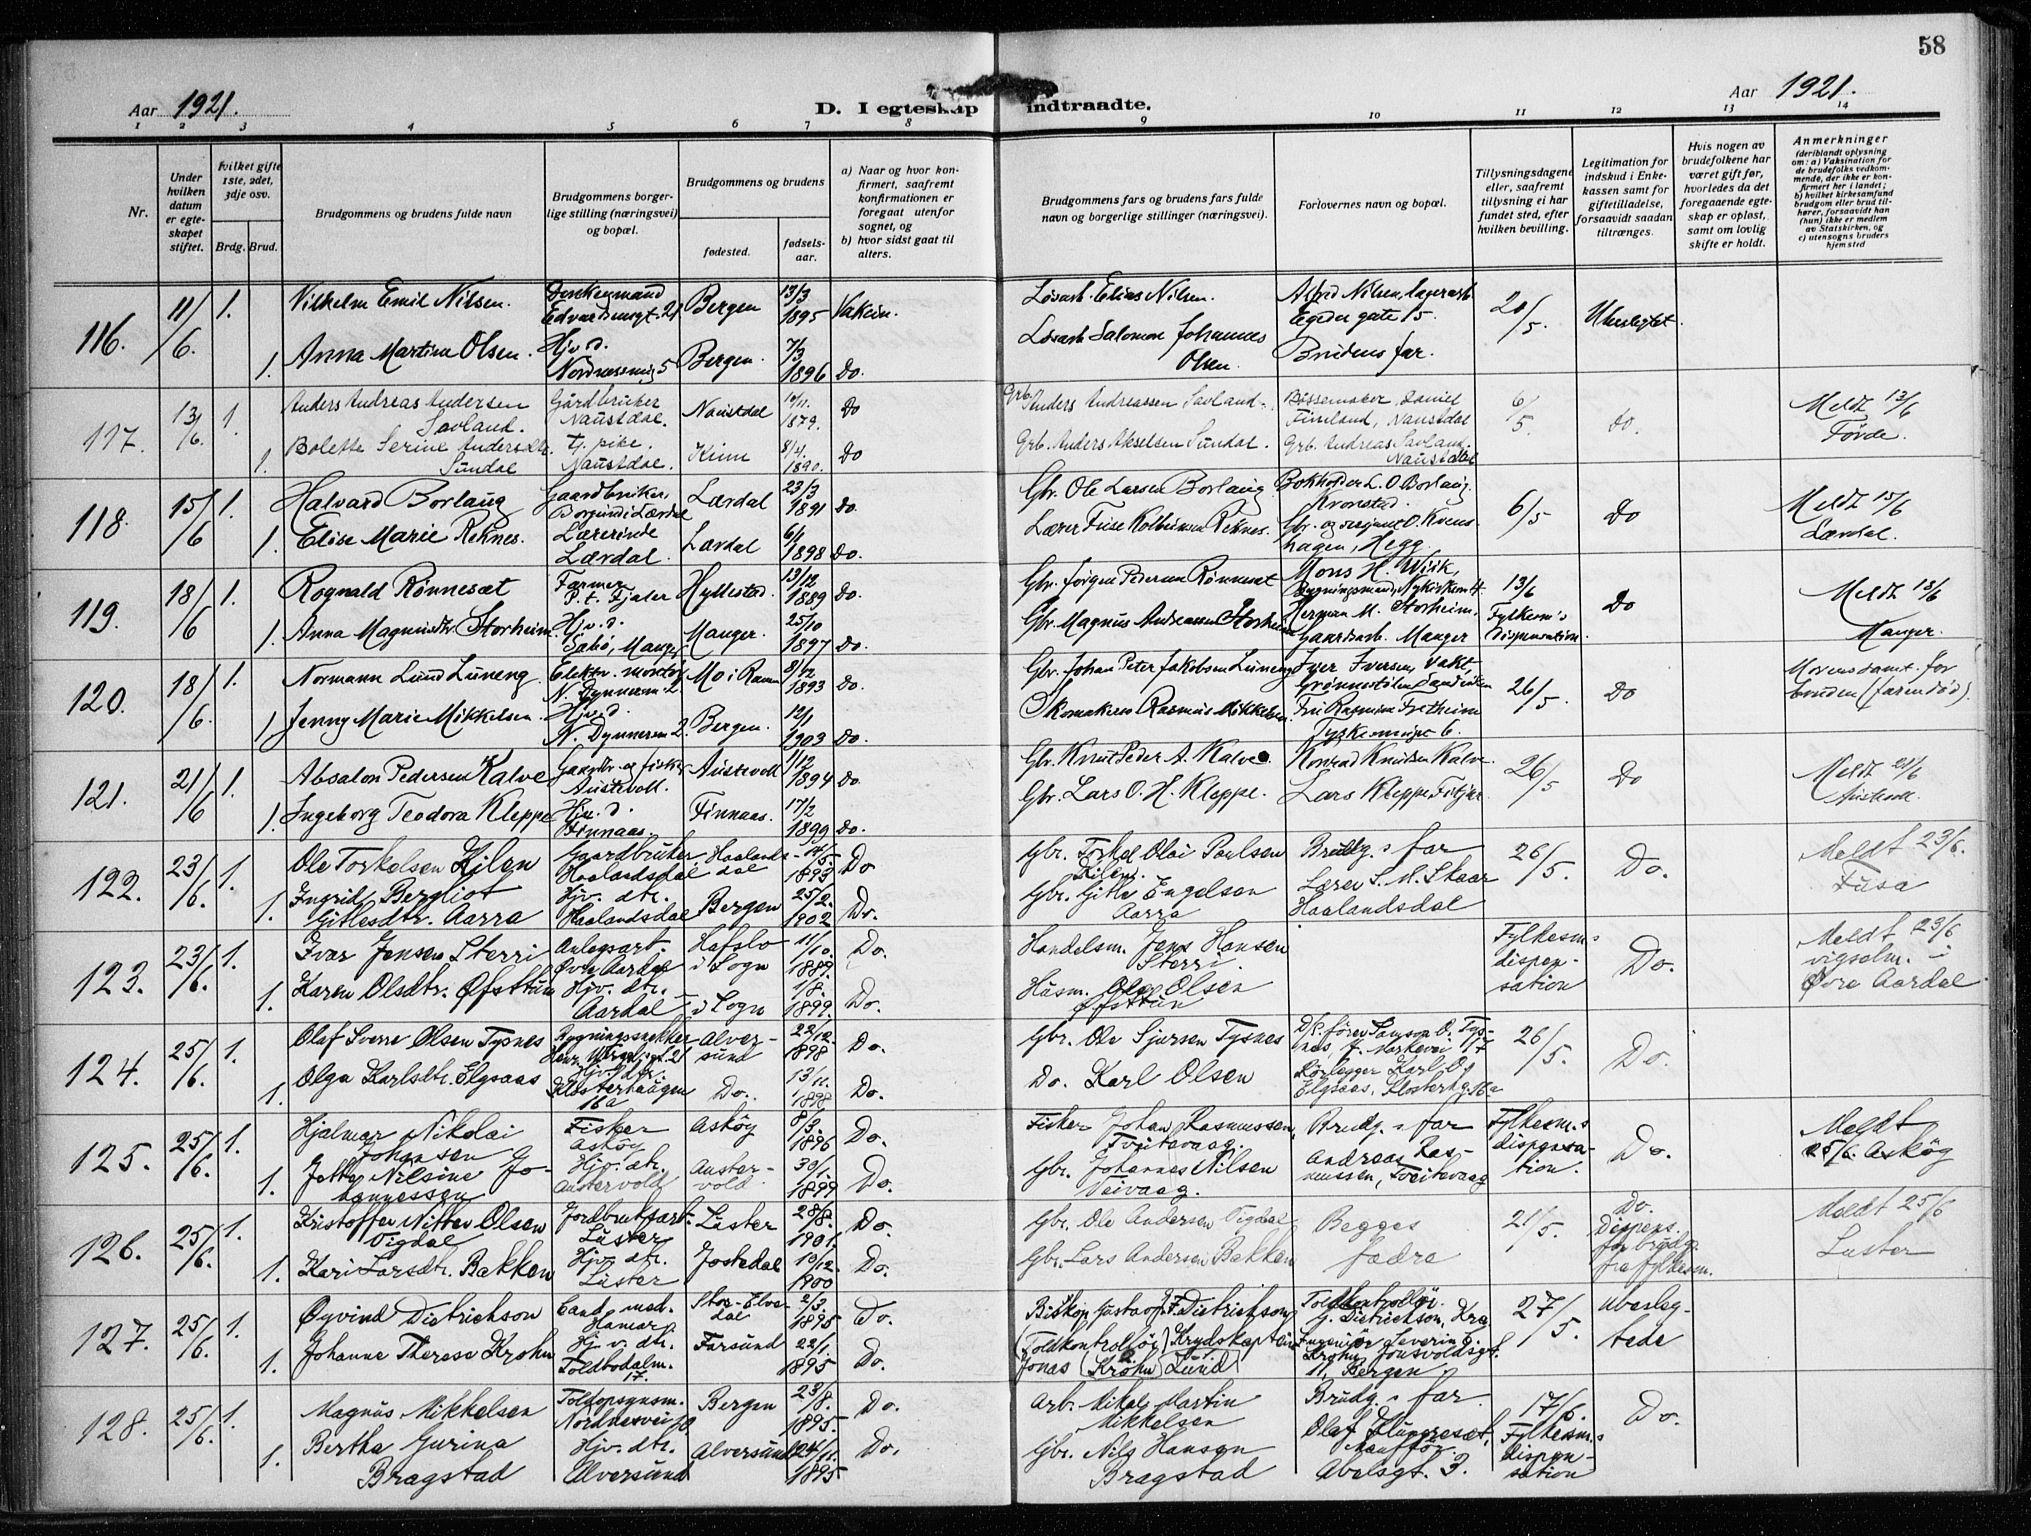 58
Aar 1921.
D. I egteskap indtraadte.
Aar 1921.
1 2 3 4 5 6 7 8 9 10 11 12 13 14
Nr.
Under hvilken datum er egteskapet stiftet.
Hvilket gifte 1ste, 2det, 3dje osv.
Brdg. Brud.
Brudgommens og brudens fulde navn
Brudgommens borgerlige stilling (næringsvei) og bopæl.
Brudgommens og brudens
fødested.
fødselsaar.
a) Naar og hvor konfirmert, saafremt konfirmationen er foregaat utenfor sognet, og
b) hvor sidst gaat til alters.
Brudgommens fars og brudens fars fulde navn og borgerlige stillinger (næringsvei).
Forlovernes navn og bopæl.
Tillysningsdagene eller, saafremt tillysning ei har fundet sted, efter hvilken bevilling.
Legitimation for indskud i Enkekassen samt for giftetilladelse, forsaavidt saadan tiltrænges.
Hvis nogen av brudefolkene har været gift før, hvorledes da det foregaaende egteskap er opløst, samt om lovlig skifte er holdt.
Anmerkninger
(deriblandt oplysning om: a) Vaksination for de brudefolks vedkommende, der ikke er konfirmert her i landet; b) hvilket kirkesamfund brudgom eller brud tilhører, forsaavidt han (hun) ikke er medlem av Statskirken, og c) utensogns bruders hjemsted
116. 11/6 1. Vilhelm Emil Nilsen. Edvardsensgt. 21 Bergen 13/3 1895
Løsarb. Elias Nilsen. Alfred Nilsen, lagerarb. Egedes gate 15. 20/5.
1. Anna Martine Olsen. Hjv. d. Bergen. 7/3 1896 Do.
Løsarb. Salomon Johannes Olsen. Brudens far.
117. 13/6. 1. Anders Andreas Andersen Savland. Gårdbruker Naustdal. Naustdal 1879. Do
Grb. Anders Andreassen Savland. Bøssemaker Daniel Fimland, Naustdal 6/5 do. Meldt 13/6 Førde.
1. Bolette Serine Andersdtr. Sundal Tj. pike. Naustdal. Kinn 8/4. 1890. Do
Grb. Anders Akselsen Sundal. Grb. Andreas Savland. Naustdal
118. 15/6 1. Halvard Borlaug Gaardbruker, Borgund i Lærdal Lærdal 23/3 1891 Do.
Gbr. Ole Larsen Borlaug Bokholder L. O. Borlaug Kronstad. 6/5 Do Meldt 15/6 Lærdal.
1. Elise Marie Reknes. Lærerinde Lærdal. Lærdal 6/1 1898 Do.
119. 18/6 1. Rognald Rønnesæt Farmer P. t. Fjaler Hyllestad. 13/12 1889 Do.
Gbr. Jørgen Pedersen Rønnesæt Mons H. Wiik, 13/6 Fylkesm's dispensation. Do Meldt 18/6 Manger.
1. Anna Magnusdtr. Storheim. Hjv. d. Sæbø, Manger Manger. 25/10 1897 Do.
Gbr. Magnus Andreassen Storheim Herman M. Storheim, Gaardarb. Manger
120. 18/6. 1. Normann Lund Luneng. Elektr. montør N. Dynnersm 2 Mo i Rana 8/12 1893 Do.
Gbr. Johan Peter Jakobsen Luneng Iver Iversen, vakt. 26/5. Do Morens samt. for bruden (faren død).
1. Jenny Marie Mikkelsen. Hjv. d. N. Dynnersm 2. Bergen. 12/1 1903 Do.
Skomaker Rasmus Mikkelsen.
121. 21/6 1. Absalon Pedersen Kalve Gaardbr. og fisker Austevoll. Austevoll 1/12 1894 Do
Gbr. Knut Peder A. Kalve. Konrad Knudsen Kalve. 26/5 Do Meldt 21/6 Austevoll
1. Ingeborg Teodora Kleppe Hjv. d. Finnaas. Finnaas. 17/2 1899 Do.
Gbr. Lars O. H. Kleppe. Lars Kleppe, Fitjar
122. 23/6. 1. Ole Torkelsen Kilen Gaardbruker Haalandsdal Haalandsdal 1893 Do
Gbr. Torkel Olai Paulsen Kilen. Brudg.s far 26/5. Do. Meldt 23/6. Fusa
1. Ingrid Bergliot Gitlesdtr. Aarra Hjv. dtr. Haalandsdal Bergen 25/2. 1902 Do.
Gbr. Gitle Engelsen Aarra Lærer S. M. Skaar Haalandsdal
123. 23/6. 1. Ivar Jensen Sterri Anlegsarb. Øvre Aardal Hafslo i Sogn 11/10. 1889. Do.
Handelsm. Jens Hansen Sterri. Fylkesm.s dispensation Do. Meldt 23/6 vigselm. i Øvre Aardal
1. Karen Olsdtr. Øfsttun Hjv. dtr. Aardal i Sogn 1/8. 1899. Do.
Husm. Ole Olsen Øfsttun
124. 25/6. 1. Olaf Sverre Olsen Tysnes Bygningssnekker Alversund 22/12. 1898 Do.
Gbr. Ole Sjursen Tysnes 26/5. Do.
1. Olga Karlsdtr. Elgsaas Hjv. dtr. Klosterhaugen 16a Do. 13/11. 1898 Do.
Do. Karl Olsen Rørlegger Karl O. Elgsaas, Klosterhg. 16a
125. 25/6. 1. Hjalmar Nikolai Johansen Fisker Askøy Askøy 8/3. 1896 Do.
Fisker Johan Rasmussen, Tveitevaag. Brudg.s far Fylkesm.s dispensation. Do. Meldt 25/6. Askøy
1. Jetta Nilsine Johannessen Hjv. dtr. Austervold Austervold 30/1. 1899 Do.
Gbr. Johannes Nilsen Andreas Rasmussen, Tveitevaag
126. 25/6. 1. Kristoffer Nitter Olsen Vigdal Jordbruksarb. Luster Luster 28/8. 1901. Do.
Gbr. Ole Andersen Vigdal Begges fædre 21/5. Do. Dispens. for brudg. fra fylkesm. Meldt 25/6 Luster
1. Kari Larsdtr. Bakken Hjv. dtr. Luster Jostedal 19/12. 1900 Do.
Gbr. Lars Andersen Bakken
127. 25/6. 1. Øyvind Dietrichson Cand. med. Hamar Stor-Elvedal 2/3. 1895 Do.
Biskop Gustav J. F. Dietrichson Toldkontrollør G. Dietrichson, Kra 27/5. Ubeslegtede
1. Johanne Therese Krohn Hjv. dtr. Toldbodalm. 17. Farsund 22/1. 1895 Do.
(Toldkontrollør Jonas Krohn) Ingeniør Severin G. Krohn, Jonsvoldsgt. 11, Bergen
128. 25/6. 1. Magnus Mikkelsen Toldopsynsm. Bergen 23/8. 1895. Do.
Arb. Nikolai Martin Mikkelsen Brudg.s far. 17/6. Fylkesm.s dispensation Do.
1. Bertha Gurina Bragstad Hjv. dtr. Alversund Alversund 24/11. 1895 Do.
Gbr. Nils Hansen Bragstad Absalsgt. 3.